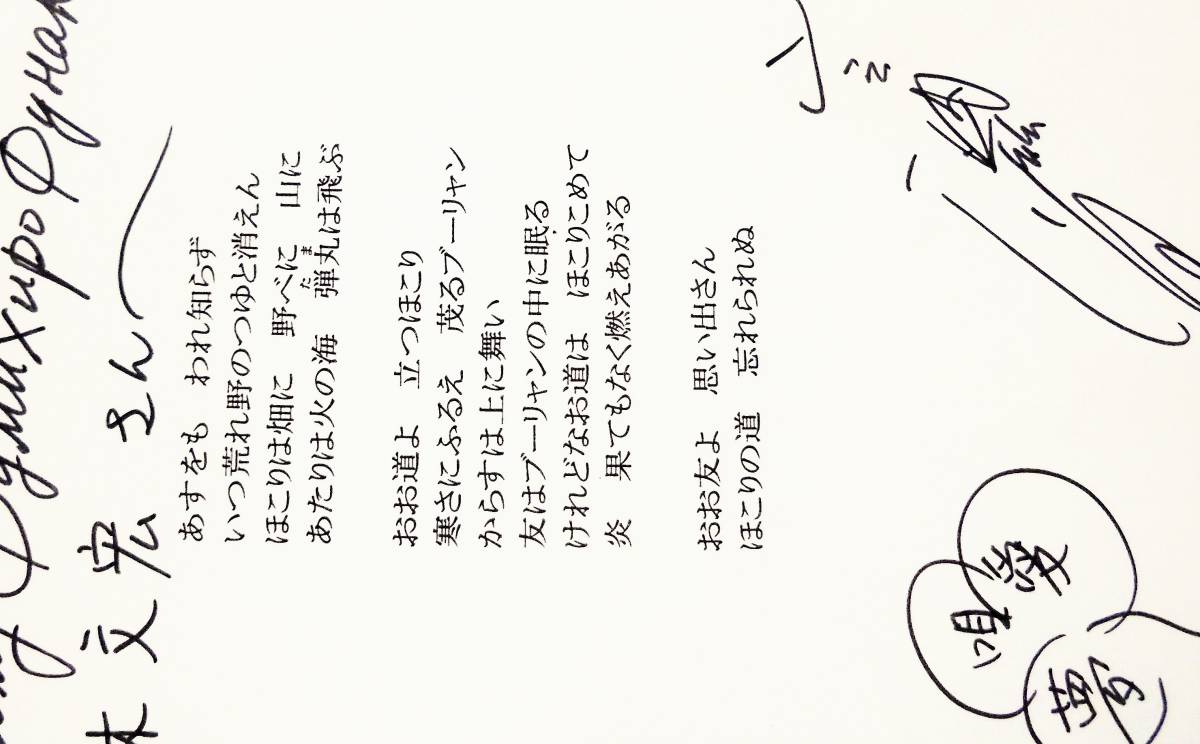 Фумихиро Фунак
木文宏さん
あすをも　われ知らず
いつ荒れ野のつゆと消えん
ほこりは畑に　野べに　山に
あたりは火の海　弾丸は飛ぶ
たま
おお道よ　立つほこり
寒さにふるえ　茂るブーリャン
からすは上に舞い
友はブーリャンの中に眠る
けれどなお道は　ほこりこめて
炎　果てもなく燃えあがる
おお友よ　思い出さん
ほこりの道　忘れられぬ
唄
愛
夢